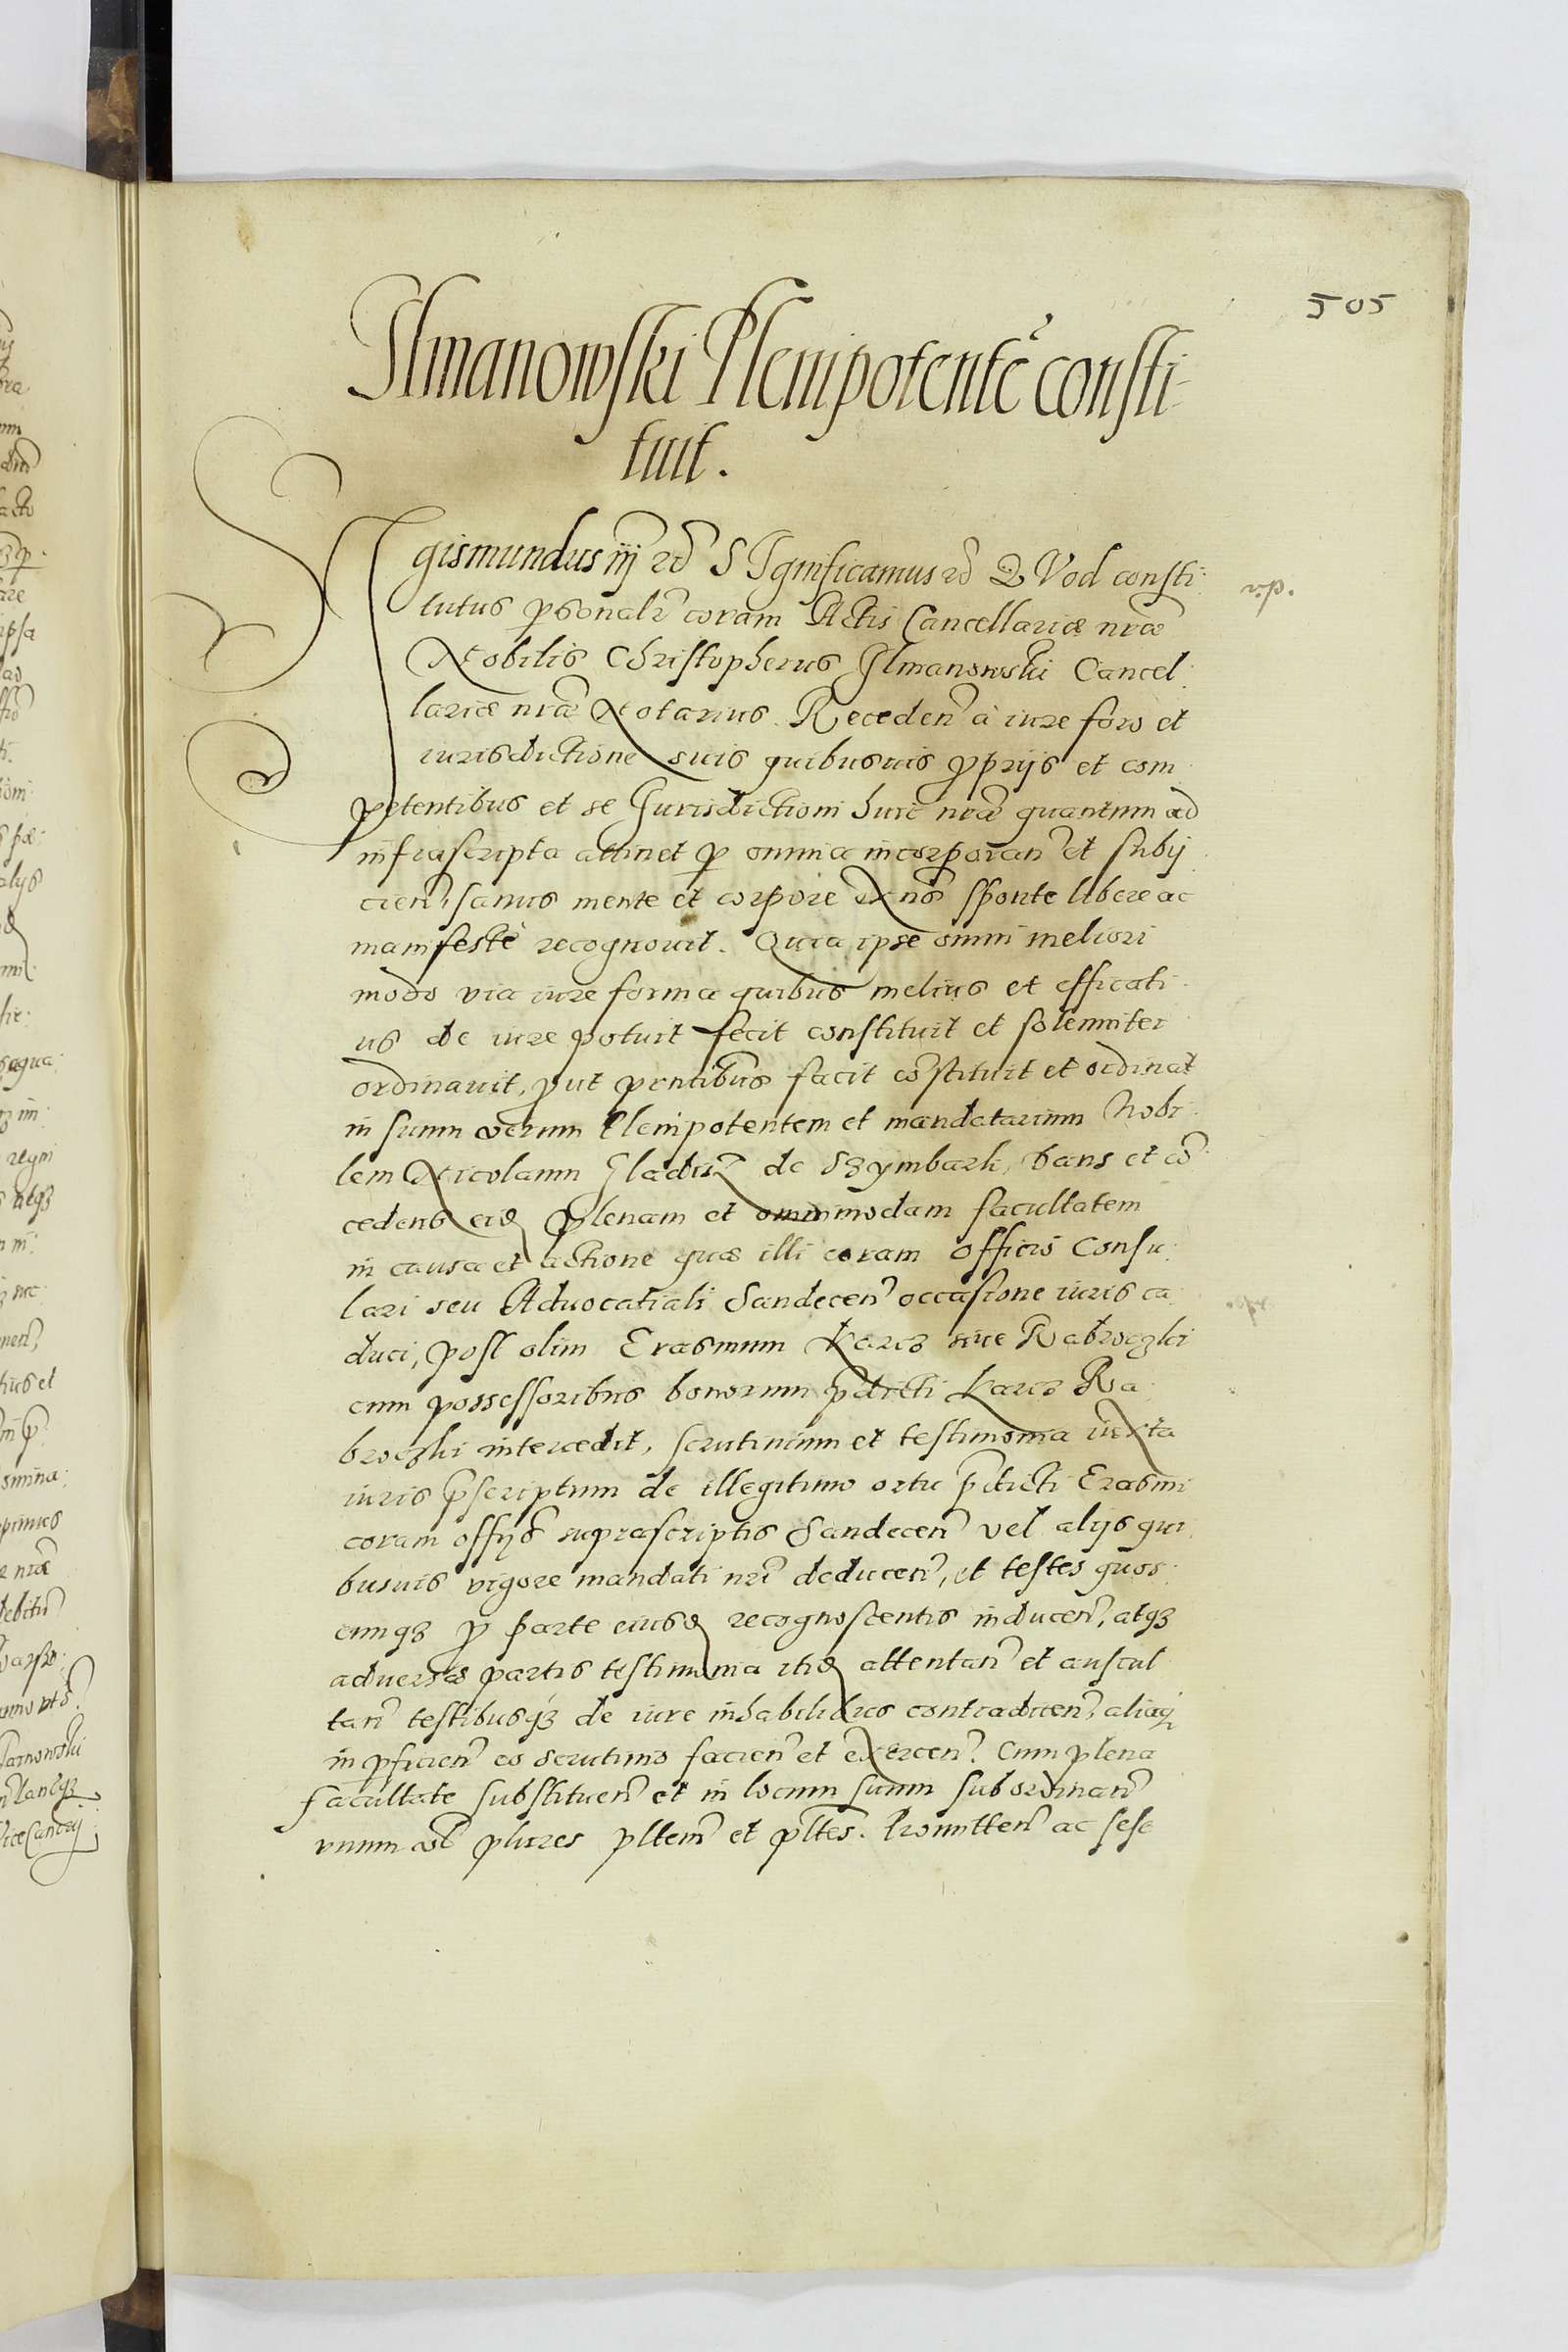 505
Ilmanowski Plenipotentē consti-
tuit.
SIgismundus iij rd SIgnificamus rd QVod consti:
tutus psonalr coram Actis Cancellariæ nræ
Nobilis Christopherus Ilmanowski Cancel:
lariæ nræ Notarius. Receden à iure foro et
iurisdictione suis quibusuis pprijs et com
petentibus et se Jurisdictioni huic nræ quantum ad
infrascripta attinet p omnia incorporan et subij
cien, sanus mente et corpore exns sponte libere ac
manifestè recognouit. Quia ipse omni meliori
modo via iure forma quibus melius et efficati
us de iure potuit fecit constituit et solenniter
ordinauit, put pntibus facit cōstituit et ordinat
in suum verum Plenipotentem et mandatarium Nobi
lem Nicolaum Gladisz de Szymbark, dans et cō
cedens eid plenam et omnimodam facultatem
in causa et actione quæ illi coram officio Consu:
lari seu Aduocatiali Sandecen occasione iuris ca
duci, post olim Erasmum Karcz siue Wabroczki
cum possessoribus bonorum pdicti Karcz Wa
broczki intercedit, scrutinium et testimonia iuxta
iuris pscriptum de illegitimo ortu pdicti Erasmi
coram offijs suprascriptis Sandecen vel alijs qui
busuis vigore mandati nri deducen, et testes quos
cunqz p parte eiusd recognoscentis inducen, atqz
aduersæ partis testimonia itid attentan et auscul
tan testibusqz de iure inhabilibus contradicen, aliaqz
in pficien eo scrutinio facien et exercen. Cum plena
facultate substituen et in locum suum subordinan
vnum vel plures pltem et pltes. Promitten ac sese